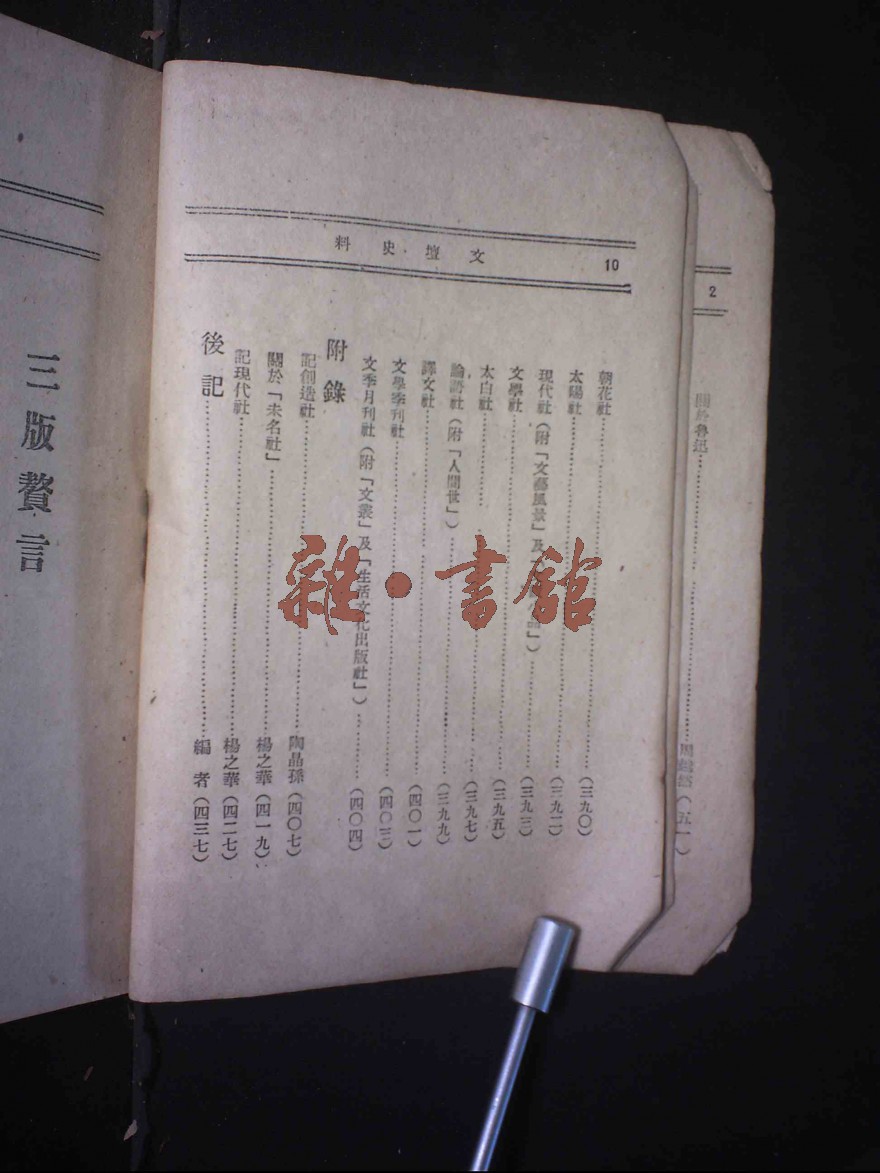 2
關於魯迅……（五一）
10
文壇史料
朝花社……（三九〇）
太陽社……（三九二）
現代社（附「文藝風景」及 品」）……（三九三）
文學社……（三九五）
太白社……（三九七）
論語社（附「人間世」）……（三九九）
譯文社……（四〇一）
文學季刊社……（四〇三）
文季月刊社（附「文叢」及「生活文化出版社」）……（四〇四）
附錄
記創造社……陶晶孫（四〇七）
關於「未名社」……楊之華（四一九）
記現代社……楊之華（四二七）
後記……編者（四三七）
三版贅言
雜·書館